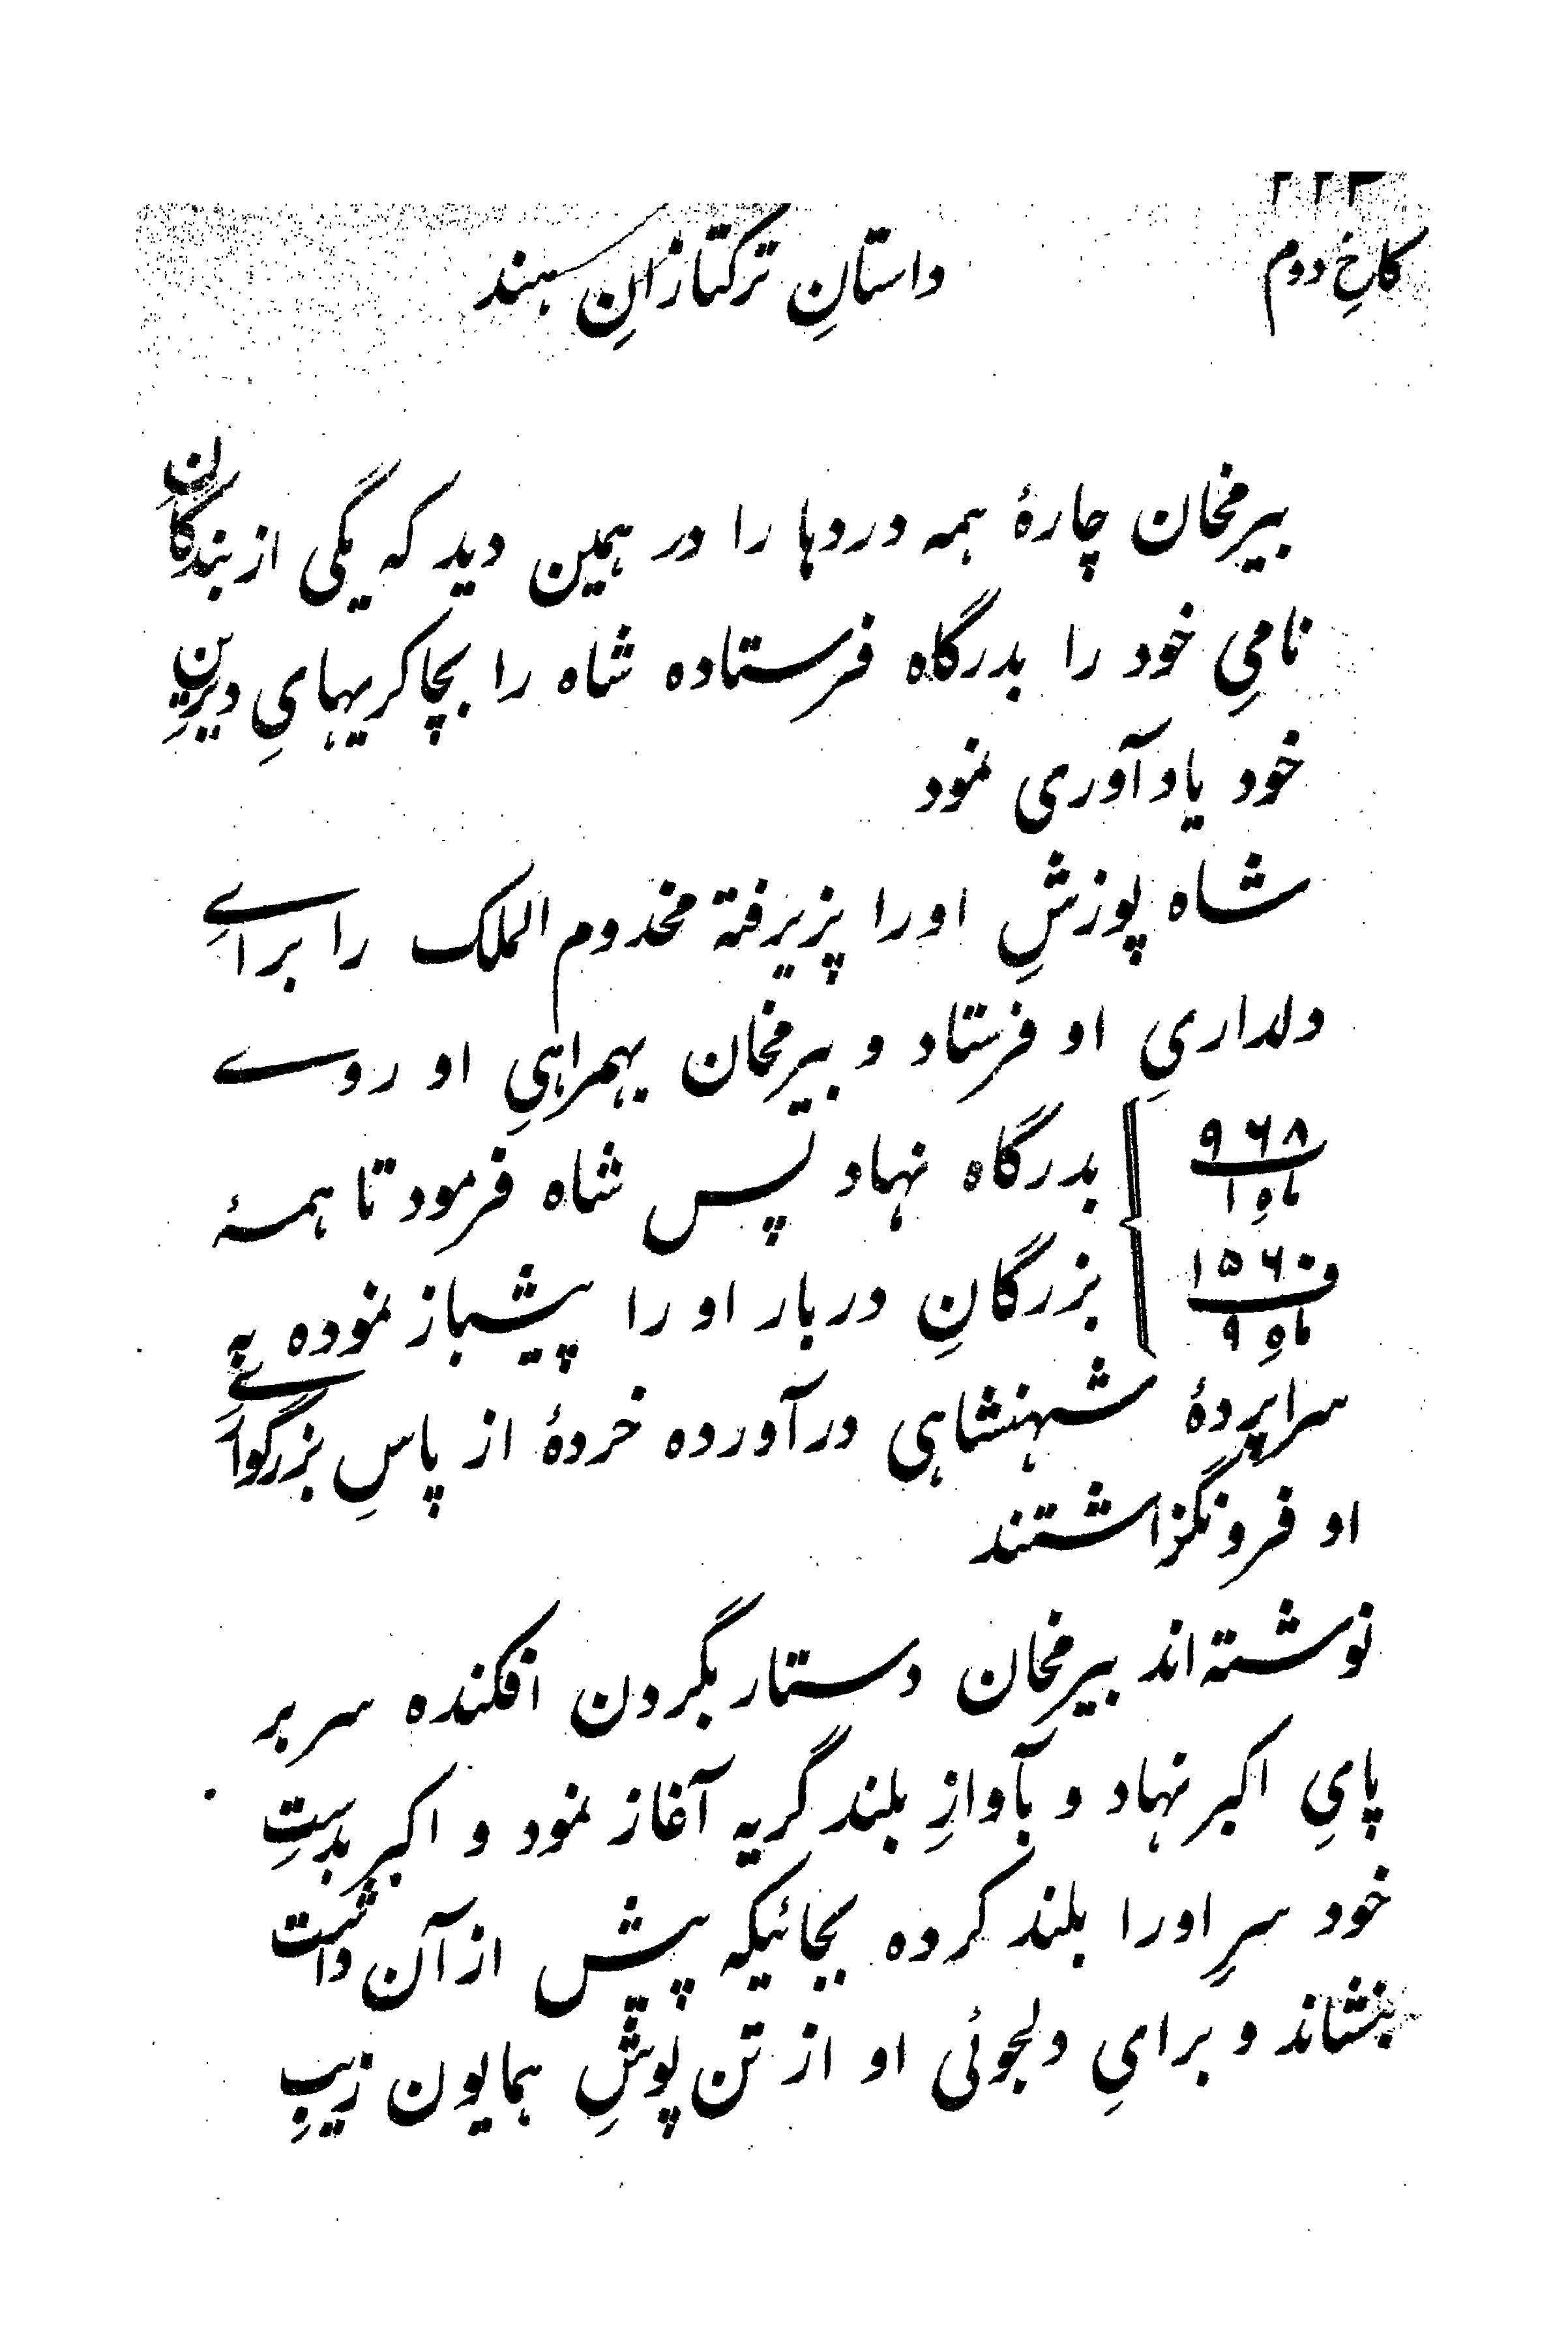 کاخِ دوم
داستانِ ترکتازانِ هند
بیرمخان چارهٔ همه دردها را در همین دید که یکی از بندگانِ
نامیِ خود را بدرگاه فرستاده شاه را بچاکریهایِ دیرینِ
خود یادآوری نمود
شاه پوزشِ اورا پزیرفته مخدوم الملک را برایِ
دلداریِ او فرستاد و بیرمخان بهمراهیِ او روے
۹۶۸ ماه ۱ بدرگاه نهاد پس شاه فرمود تا همهٔ
۱۵۶۰ ماه ۹ بزرگانِ دربار او را پیشباز نموده به
سراپردهٔ شهنشاهی درآورده خردهٔ از پاسِ بزرگوارےِ
او فرونگزاشتند
نوشته‌اند بیرمخان دستار بگردن افکنده سر بر
پایِ اکبر نهاد و بآوازِ بلند گریه آغاز نمود و اکبر بدستِ
خود سرِ اورا بلند کرده بجائیکه پیش از آن داشت
بنشاند و برایِ دلجوئی او از تن پوشِ همایون زیبِ